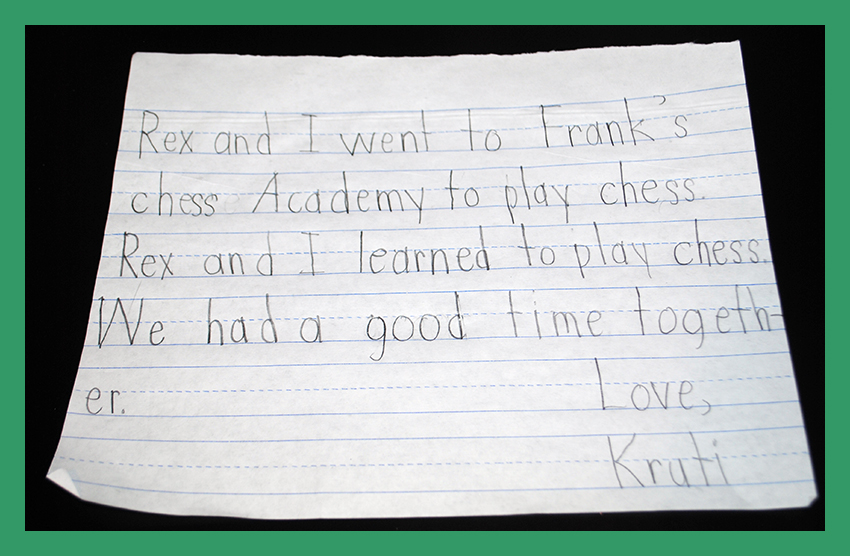 Rex and I went to Frank's
chess Academy to play chess.
Rex and I learned to play chess.
We had a good time togeth-
er. Love,
Kruti